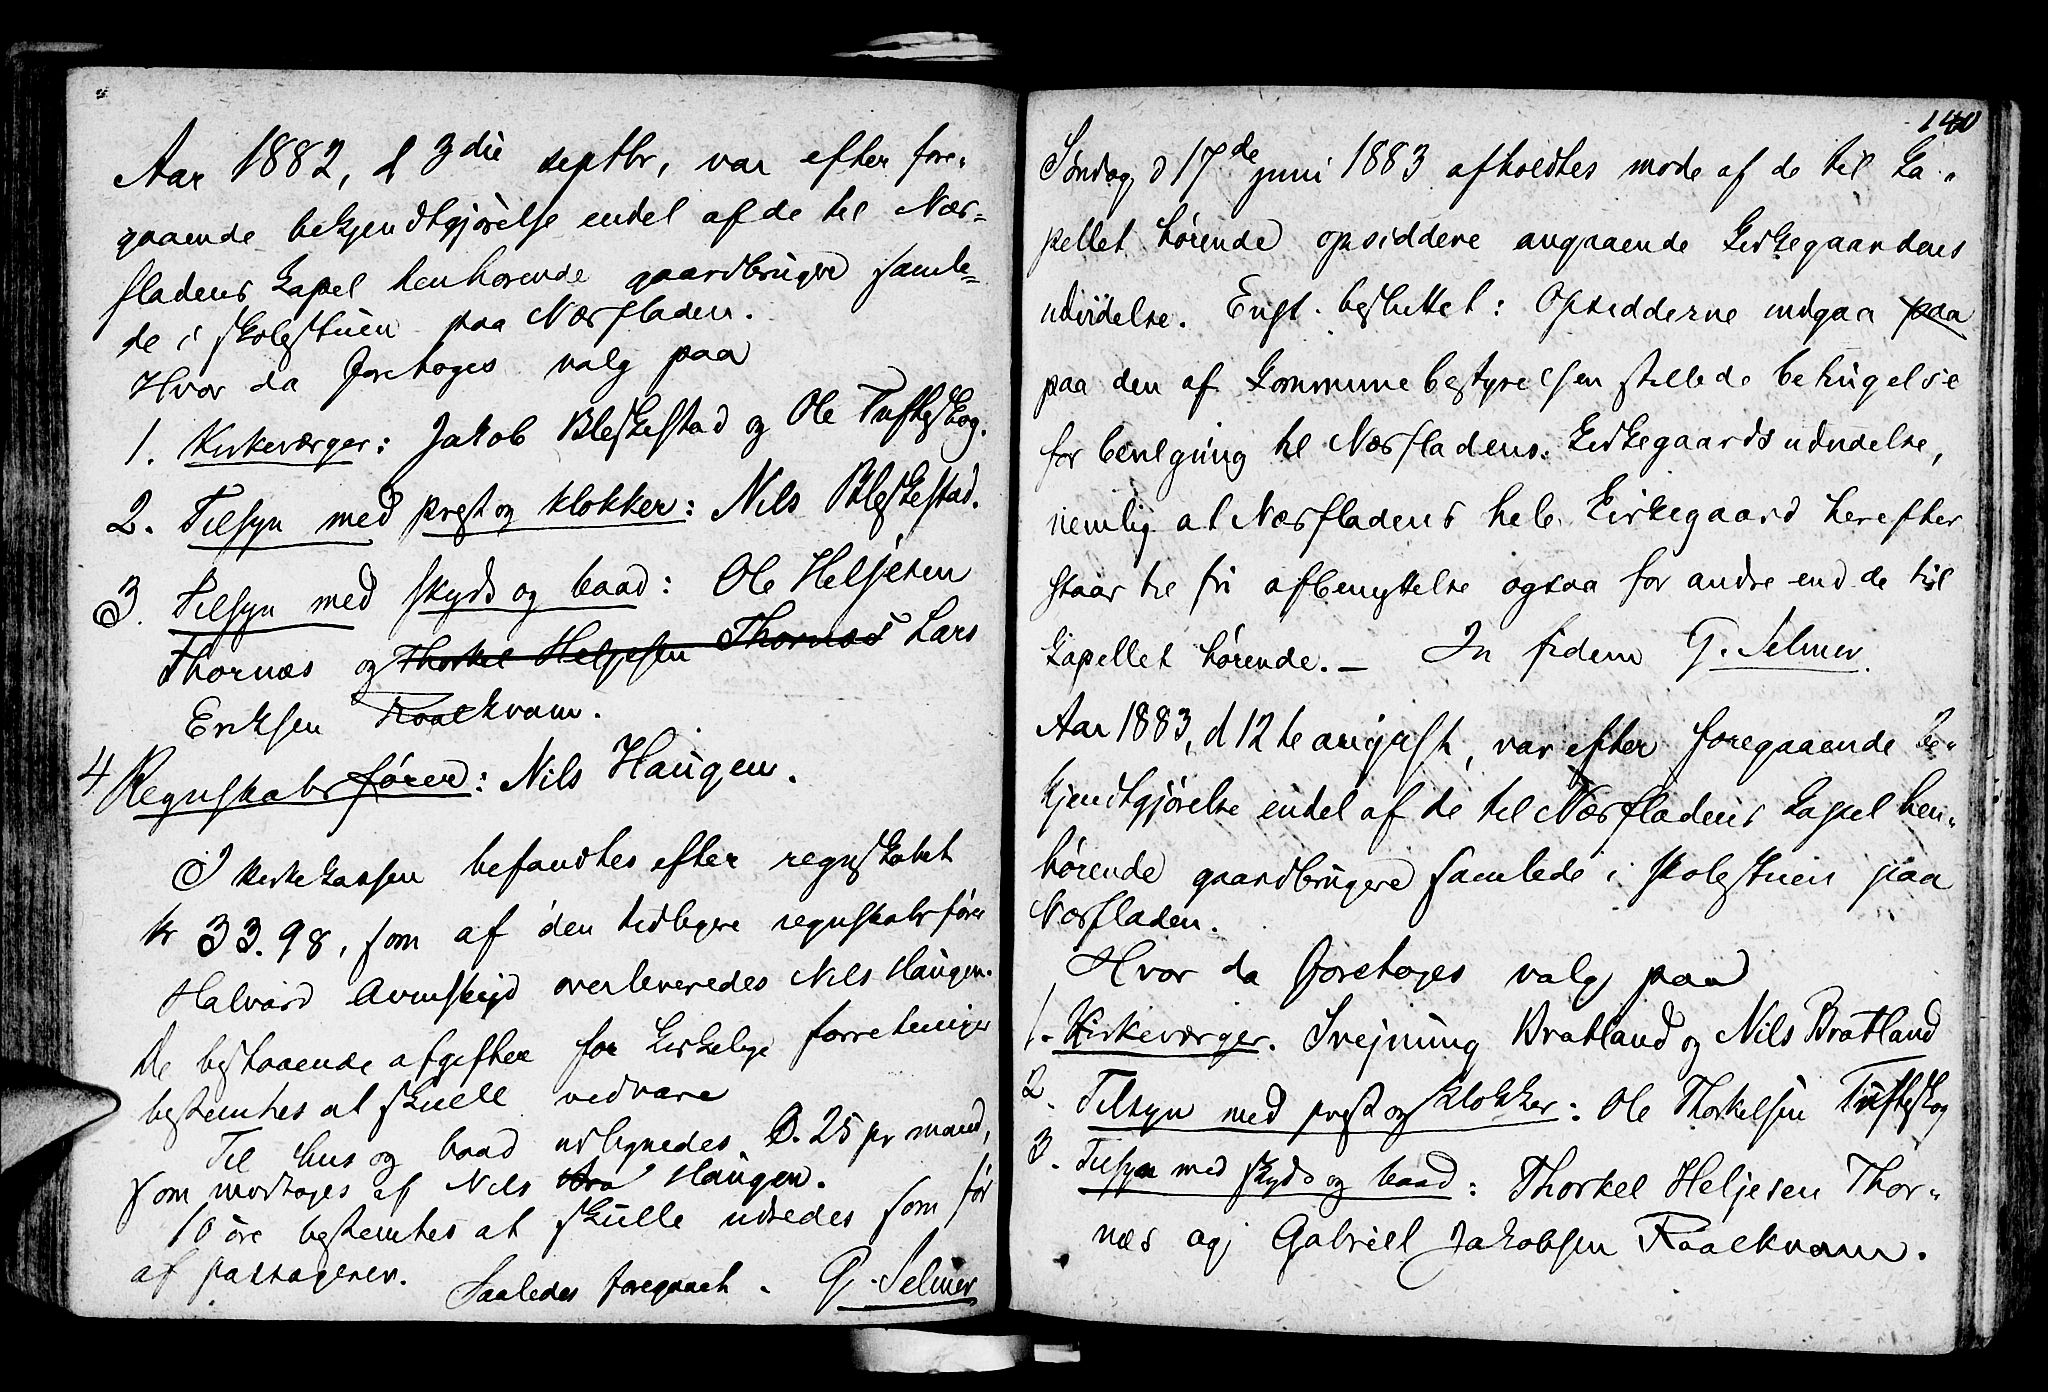 Aar 1882, d 3die septbr, var efter fore-
gaaende bekjendtgjörelse endel af de til Næs-
fladens Kapel henhørende gaardbrugere samle-
de i skolestuen paa Næsfladen.
Hvor da foretoges valg paa
1. Kirkeværger: Jakob Bleskestad og Ole Tufteskog.
2. Tilsyn med prest og klokker: Nils Bleskestad.
3. Tilsyn med skyds og baad: Ole Heljesen
Thornæs og Thorkel Heljesen Thornæs Lars
Eriksen Roalkvam.
4 Regnskabsfører: Nils Haugen.
I kirkekassen befandtes efter regnskabet
kr 33.98, som af den tidligere regnskabsfører
Halvard overleveredes Nils Haugen.
De bestaaende afgifter for kirkelige forretninger
bestemtes at skulle vedvare
Til hus og baad udlignedes 0.25 pr mand,
som modtoges af Nils Bra Haugen.
10 öre bestemtes at skulle udredes som før
af passagerer. Saaledes foregaaet. G. Selmer
140
Søndag d 17de juni 1883 afholdtes møde af de til Ka-
pellet hørende opsiddere angaaende Kirkegaardens
udvidelse. Enst. besluttet: Opsidderne indgaa paa
paa den af Kommunebestyrelsen stillede betingelse
for bevilgning til Næsfladens Kirkegaards udvidelse,
nemlig at Næsfladens hele Kirkegaard herefter
staar til fri afbenyttelse ogsaa for andre end de til
Kapellet hørende. — In fidem G. Selmer.
Aar 1883, d 12te august, var efter foregaaende be-
kjendtgjörelse endel af de til Næsfladens Kapel hen-
hørende gaardbrugere samlede i skolestuen paa
Næsfladen.
Hvor da foretoges valg paa
1. Kirkeværger. Svejnung Bratland og Nils Bratland
2. Tilsyn med prest og klokker: Ole Thorkelsen Tufteskog
3. Tilsyn med skyds og baad: Thorkel Heljesen Thor-
næs og Gabriel Jakobsen Roalkvam.